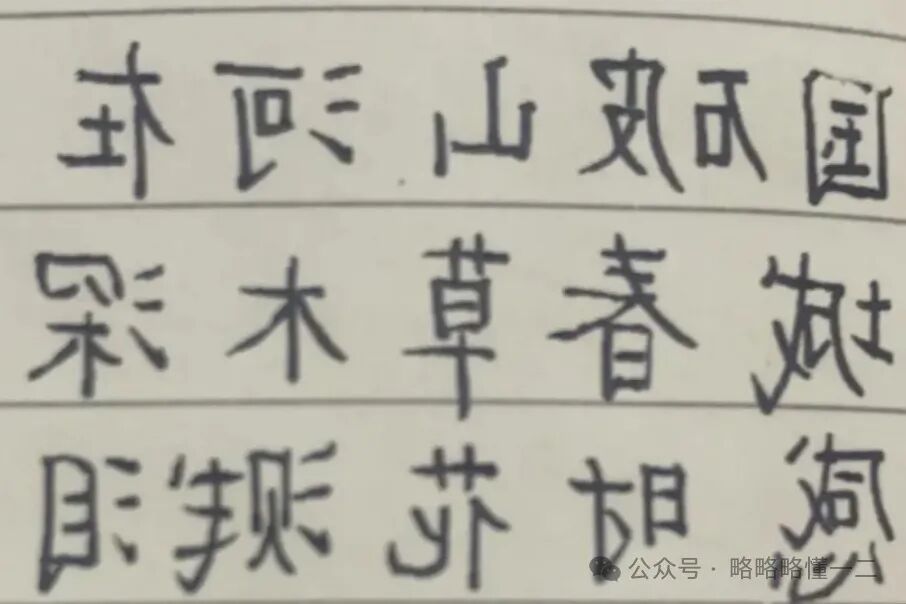 国破山河在
城春草木深
感时花溅泪
公众号·略略略懂一二